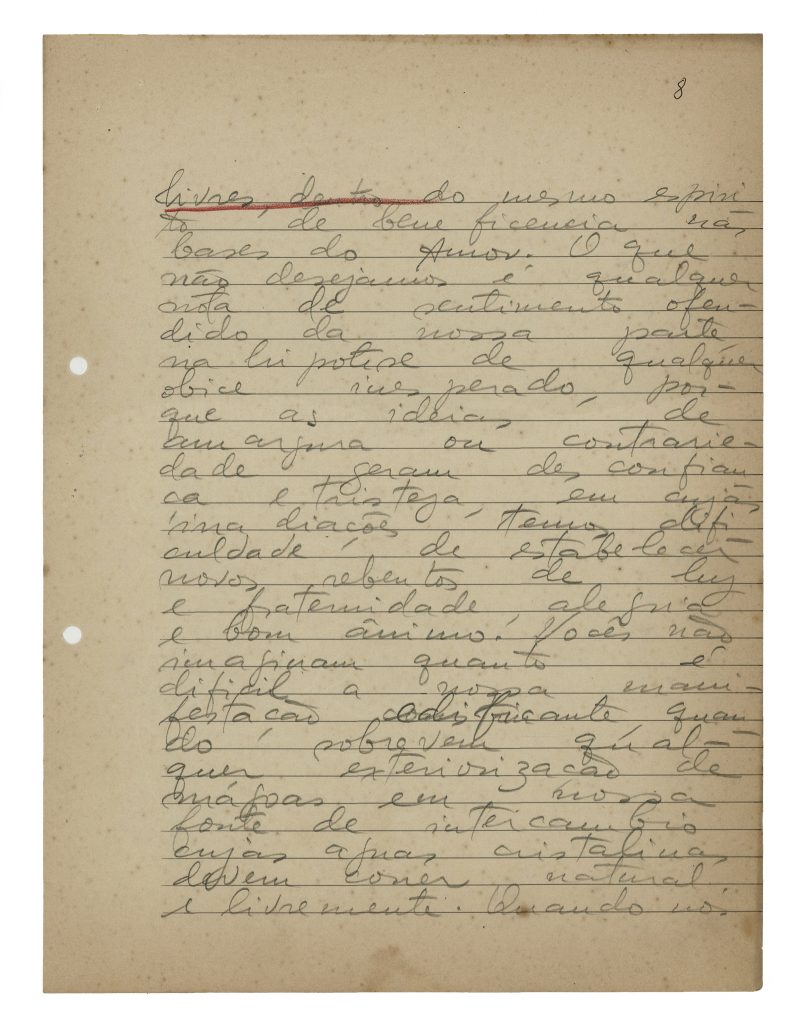 8
livres, dentro do mesmo espiri
to de beneficencia nas
bases do Amor. O que
não desejamos é qualquer
nota de sentimento ofen-
dido da nossa parte
na hipotese de qualquer
obice inesperado, por-
que as ideias de
amargura ou contrarie-
dade geram desconfian
ca e tristeza, em cujas
irradiações temos difi
culdade de estabelecer
novos rebentos de luz
e fraternidade, alegria
e bom ânimo. Vocês não
imaginam quanto é
dificil a nossa mani-
festação edificante quan
do sobrevem qual-
quer exteriorização de
mágoas em nossa
fonte de intercambio
cujas aguas cristalinas
devem correr natural
e livremente. Quando nós